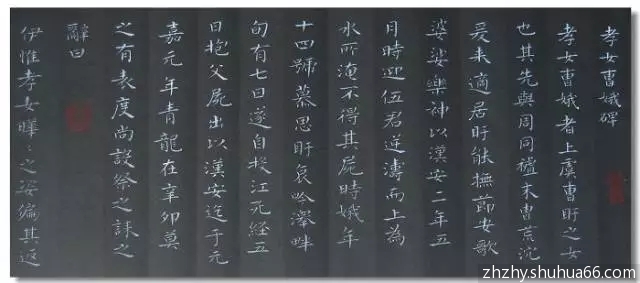 孝女曹娥碑
孝女曹娥者上虞曹盱之女
也其先與周同末胄荒沉
爰来適居盱能撫節安歌
婆娑樂神以漢安二年五
月時迎伍君逆濤而上為
水所淹不得其屍時娥年
十四號慕思盱哀吟澤畔
旬有七日遂自投江死経五
日抱父屍出以漢安迄于元
嘉元年青龍在辛卯莫
之有表度尚設祭之誄之
辭曰
伊惟孝女曄〻之姿偏其返
zhzhy.shuhua66.com